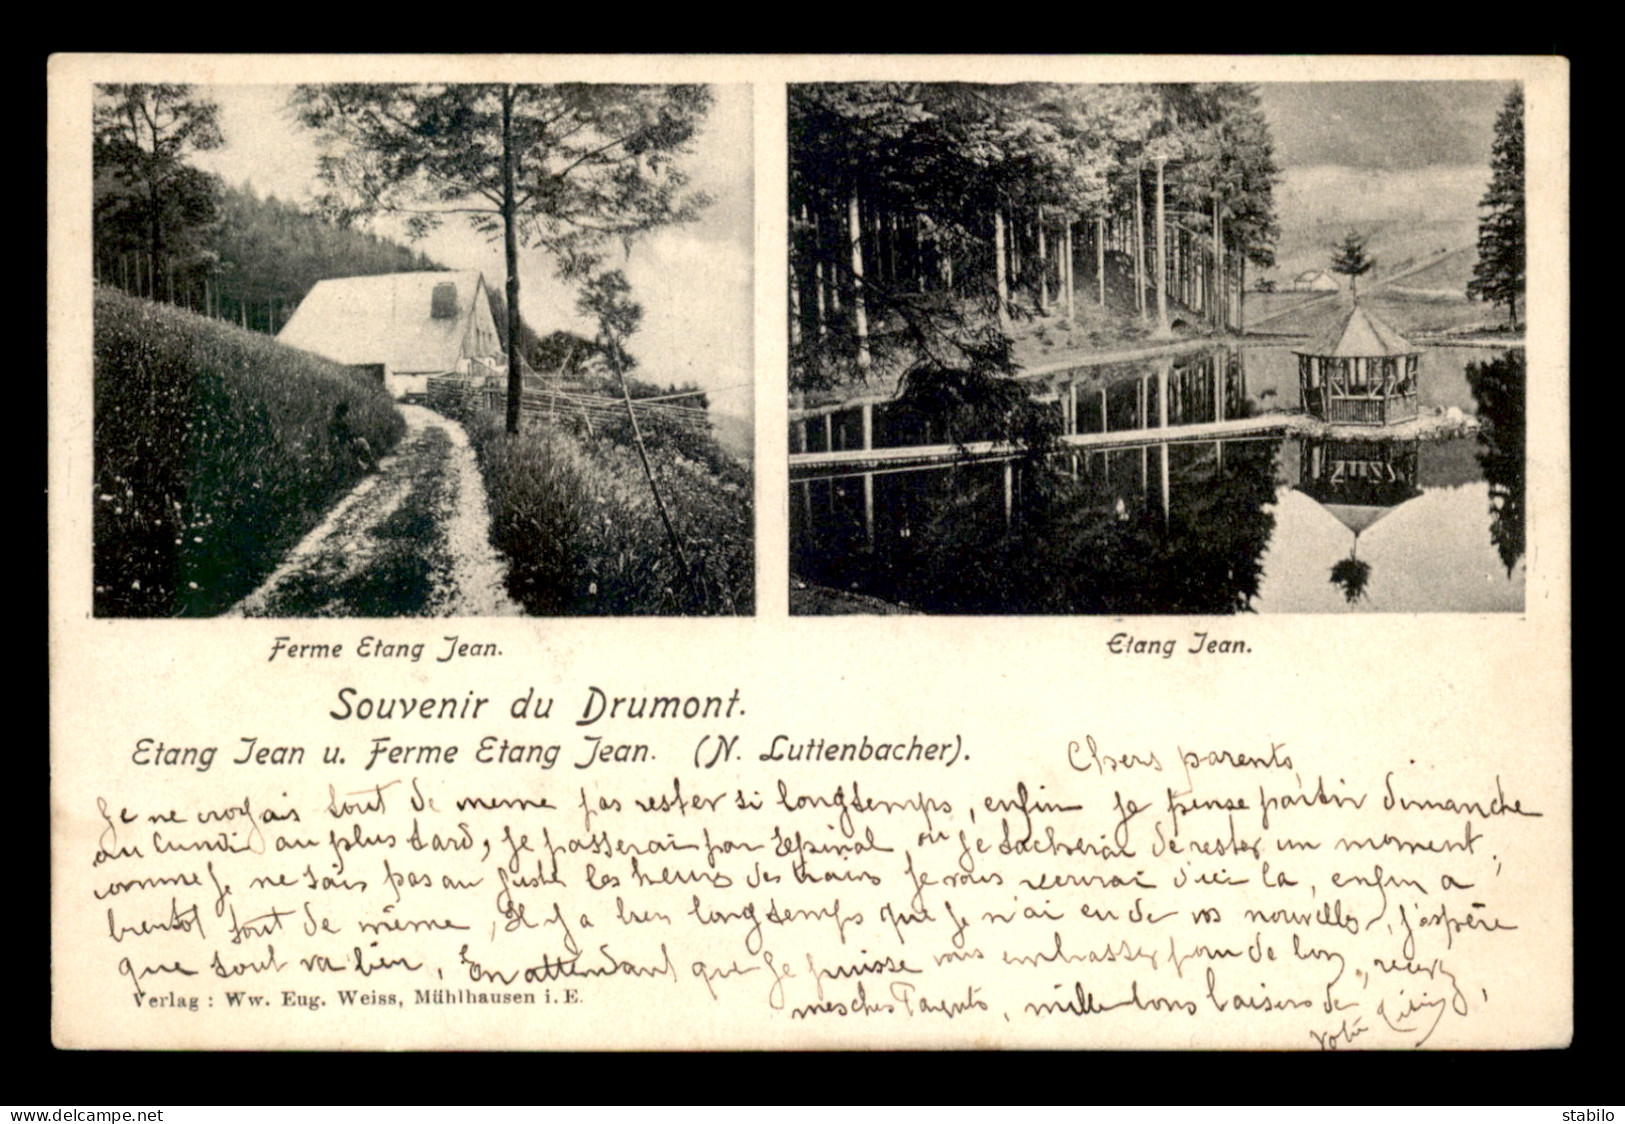 Ferme Etang Jean.
Etang Jean.
Souvenir du Drumont.
Etang Jean u. Ferme Etang Jean. (N. Luttenbacher).
Chers parents,
Je ne croyais tout de meme pas rester si longtemps, enfin je pense partir dimanche
ou Lundi au plus tard, je passerai par Epinal ou je tacherai de rester un moment,
comme je ne sais pas au juste les heures des trains je vous recrirai d'ici la, enfin a
bientot tout de même, Il y a bien longtemps que je n'ai eu de vos nouvelles, j'espère
que tout va bien, En attendant que je puisse vous embrasser pour de bon, recevez
mes chers Parents, mille bons baisers de
votre
Verlag : Ww. Eug. Weiss, Mühlhausen i. E.
delcampe.net
stabilo